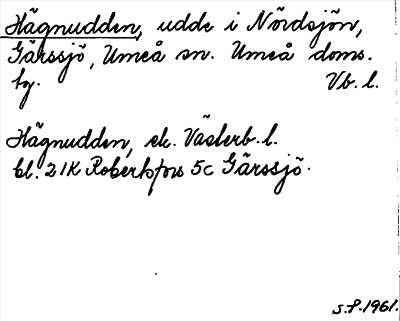 Hägnudden, udde i Nördsjön,
Gärssjö, Umeå sn. Umeå doms.
tg. Vb. l.
Hägnudden, ek. Västerb. l.
bl. 21K Robertsfors 5c Gärssjö.
S.P. 1961.